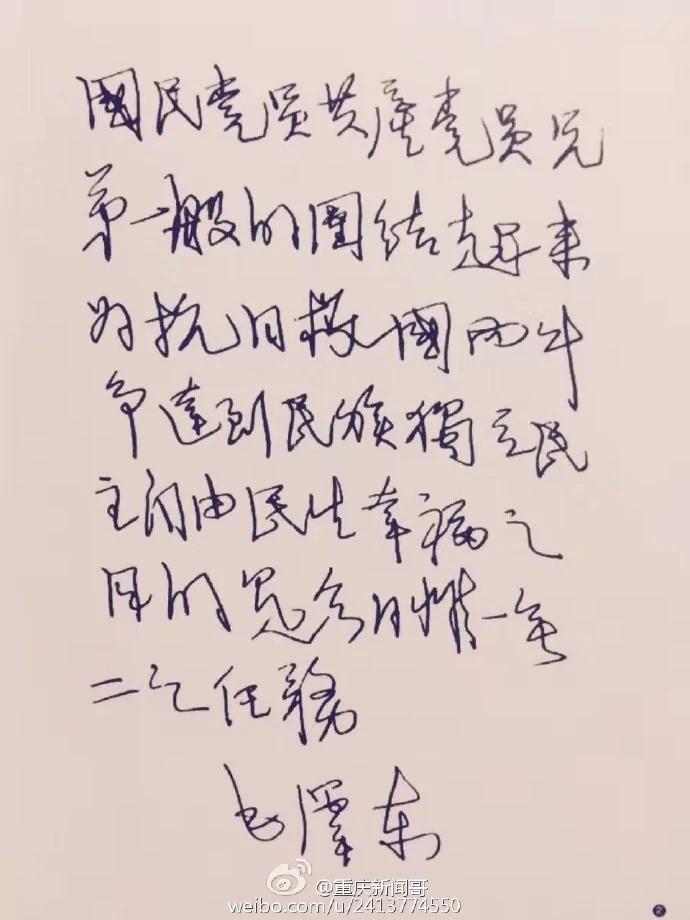 國民党员共產党员兄
弟一般的團结起来
为抗日救國而斗
争達到民族獨立民
主自由民生幸福之
目的是今日惟一無
二之任務
毛澤东
@重庆新闻哥
weibo.com/u/2413774550
2